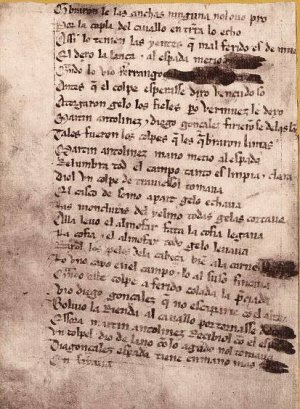 Q̃braron le las çinchas ninguna nol ouo pro
Por la copla del cauallo en tr̃ra lo echo
Assi lo tenien las yentes q̃ mal ferido es de muert
El dexo la lança ⁊ al espada metio
Qñdo lo vio ferrangonçalez
Antes q̃ el colpe esperasse dixo vençudo so
Atorgaron gelo los fieles p̃o vermuez le dexo
Martin antolinez ⁊ diego gonçalez firierõ se delas lanças
Tales fueron los colpes q̃ les q̃braron
Martin antolinez mano metio al espada
Relumbra tod el campo tanto es limpia ⁊ clara
Diol vn colpe de trauiessol tomaua
El casco de somo apart gelo echaua
Las moncluras del yelmo todas gelas cortaua
Alla leuo el almofar fata la cofia legaua
La cofia ⁊ el almofar todo gelo leuaua
Raxol los pelos dela cabeça biẽ ala carne
Lo vno cayo enel campo ⁊ lo al suso fincaua
Qñdo este colpe a ferido colada la p̃çiada
Vio diego gonçalez q̃ no escaparie con el alma
Boluio la Rienda al cauallo por tornasse
Essora martin antolinez Reçibiol con el espada
Vn colpel dio de lano cõ lo agudo nol tomaua
Diagonçalez espada tiene en mano mas